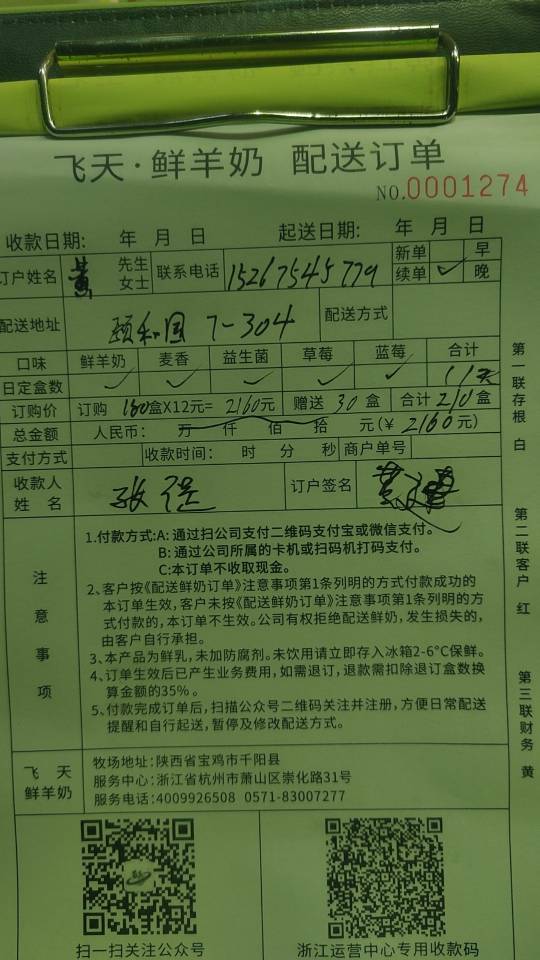 飞天·鲜羊奶 配送订单
NO.0001274
收款日期: 年 月 日 起送日期: 年 月 日
订户姓名 黄 先生 女士 联系电话 15267545779 新单 早 续单 ✓ 晚
配送地址 颐和园 7-304 配送方式
口味 鲜羊奶 麦香 益生菌 草莓 蓝莓 合计
日定盒数 ✓ ✓ ✓ ✓ ✓ 1天
订购价 订购 180盒X12元= 2160元 赠送 30 盒 合计 210 盒
总金额 人民币: 万 仟 佰 拾 元(¥ 2160 元)
支付方式 收款时间: 时 分 秒 商户单号
收款人姓名 张强 订户签名
注意事项
1.付款方式:A: 通过扫公司支付二维码支付宝或微信支付。
B: 通过公司所属的卡机或扫码机打码支付。
C:本订单不收取现金。
2、客户按《配送鲜奶订单》注意事项第1条列明的方式付款成功的
本订单生效，客户未按《配送鲜奶订单》注意事项第1条列明的方
式付款的，本订单不生效。公司有权拒绝配送鲜奶，发生损失的，
由客户自行承担。
3、本产品为鲜乳，未加防腐剂。未饮用请立即存入冰箱2-6°C保鲜。
4、订单生效后已产生业务费用，如需退订，退款需扣除退订盒数换
算金额的35%。
5、付款完成订单后，扫描公众号二维码关注并注册，方便日常配送
提醒和自行起送，暂停及修改配送方式。
飞天
鲜羊奶
牧场地址:陕西省宝鸡市千阳县
服务中心:浙江省杭州市萧山区崇化路31号
服务电话:4009926508 0571-83007277
扫一扫关注公众号
浙江运营中心专用收款码
第一联存根 白
第二联客户 红
第三联财务 黄